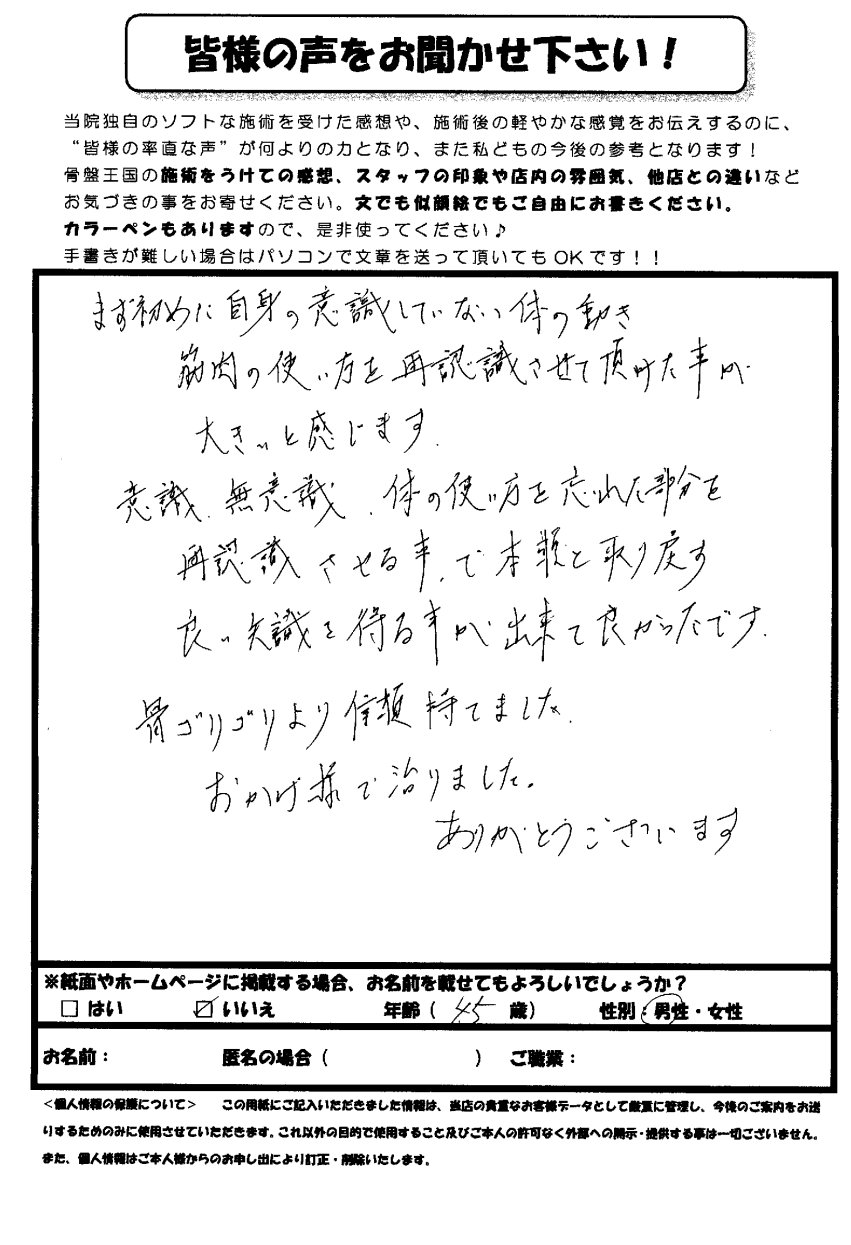 皆様の声をお聞かせ下さい！
当院独自のソフトな施術を受けた感想や、施術後の軽やかな感覚をお伝えするのに、
“皆様の率直な声”が何よりの力となり、また私どもの今後の参考となります！
骨盤王国の施術をうけての感想、スタッフの印象や店内の雰囲気、他店との違いなど
お気づきの事をお寄せください。文でも似顔絵でもご自由にお書きください。
カラーペンもありますので、是非使ってください♪
手書きが難しい場合はパソコンで文章を送って頂いてもOKです！！
まず初めに自身の意識していない体の動き
筋肉の使い方を再認識させて頂けた事が
大きいと感じます.
意識、無意識、体の使い方を忘れた部分を
再認識させる事、で本来と取り戻す
良い知識を得る事が出来て良かったです.
骨ゴリゴリより信頼持てました.
おかげ様で治りました。
ありがとうございます
※紙面やホームページに掲載する場合、お名前を載せてもよろしいでしょうか？
□はい ☑いいえ 年齢（45 歳） 性別：男性・女性
お名前： 匿名の場合（ ） ご職業：
＜個人情報の保護について＞ この用紙にご記入いただきました情報は、当店の貴重なお客様データとして厳重に管理し、今後のご案内をお送
りするためのみに使用させていただきます。これ以外の目的で使用すること及びご本人の許可なく外部への開示・提供する事は一切ございません。
また、個人情報はご本人様からのお申し出により訂正・削除いたします。